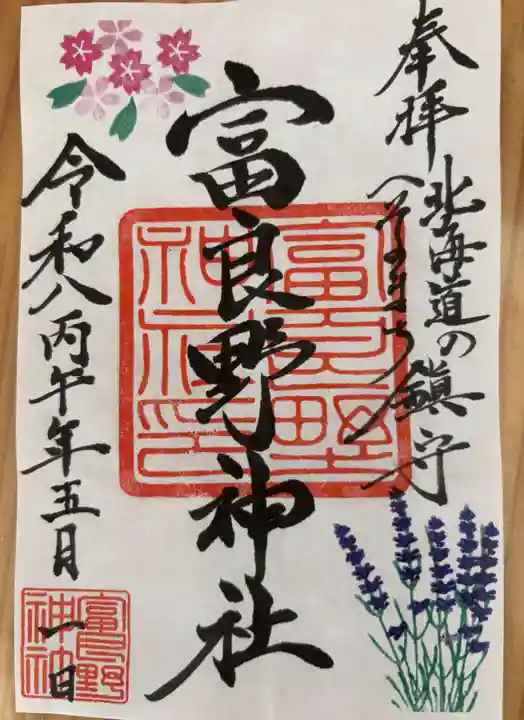 奉拝
北海道の
へそのまち鎮守
富良野神社
富良野
神社印
令和八丙午年五月一日
富良野
神社